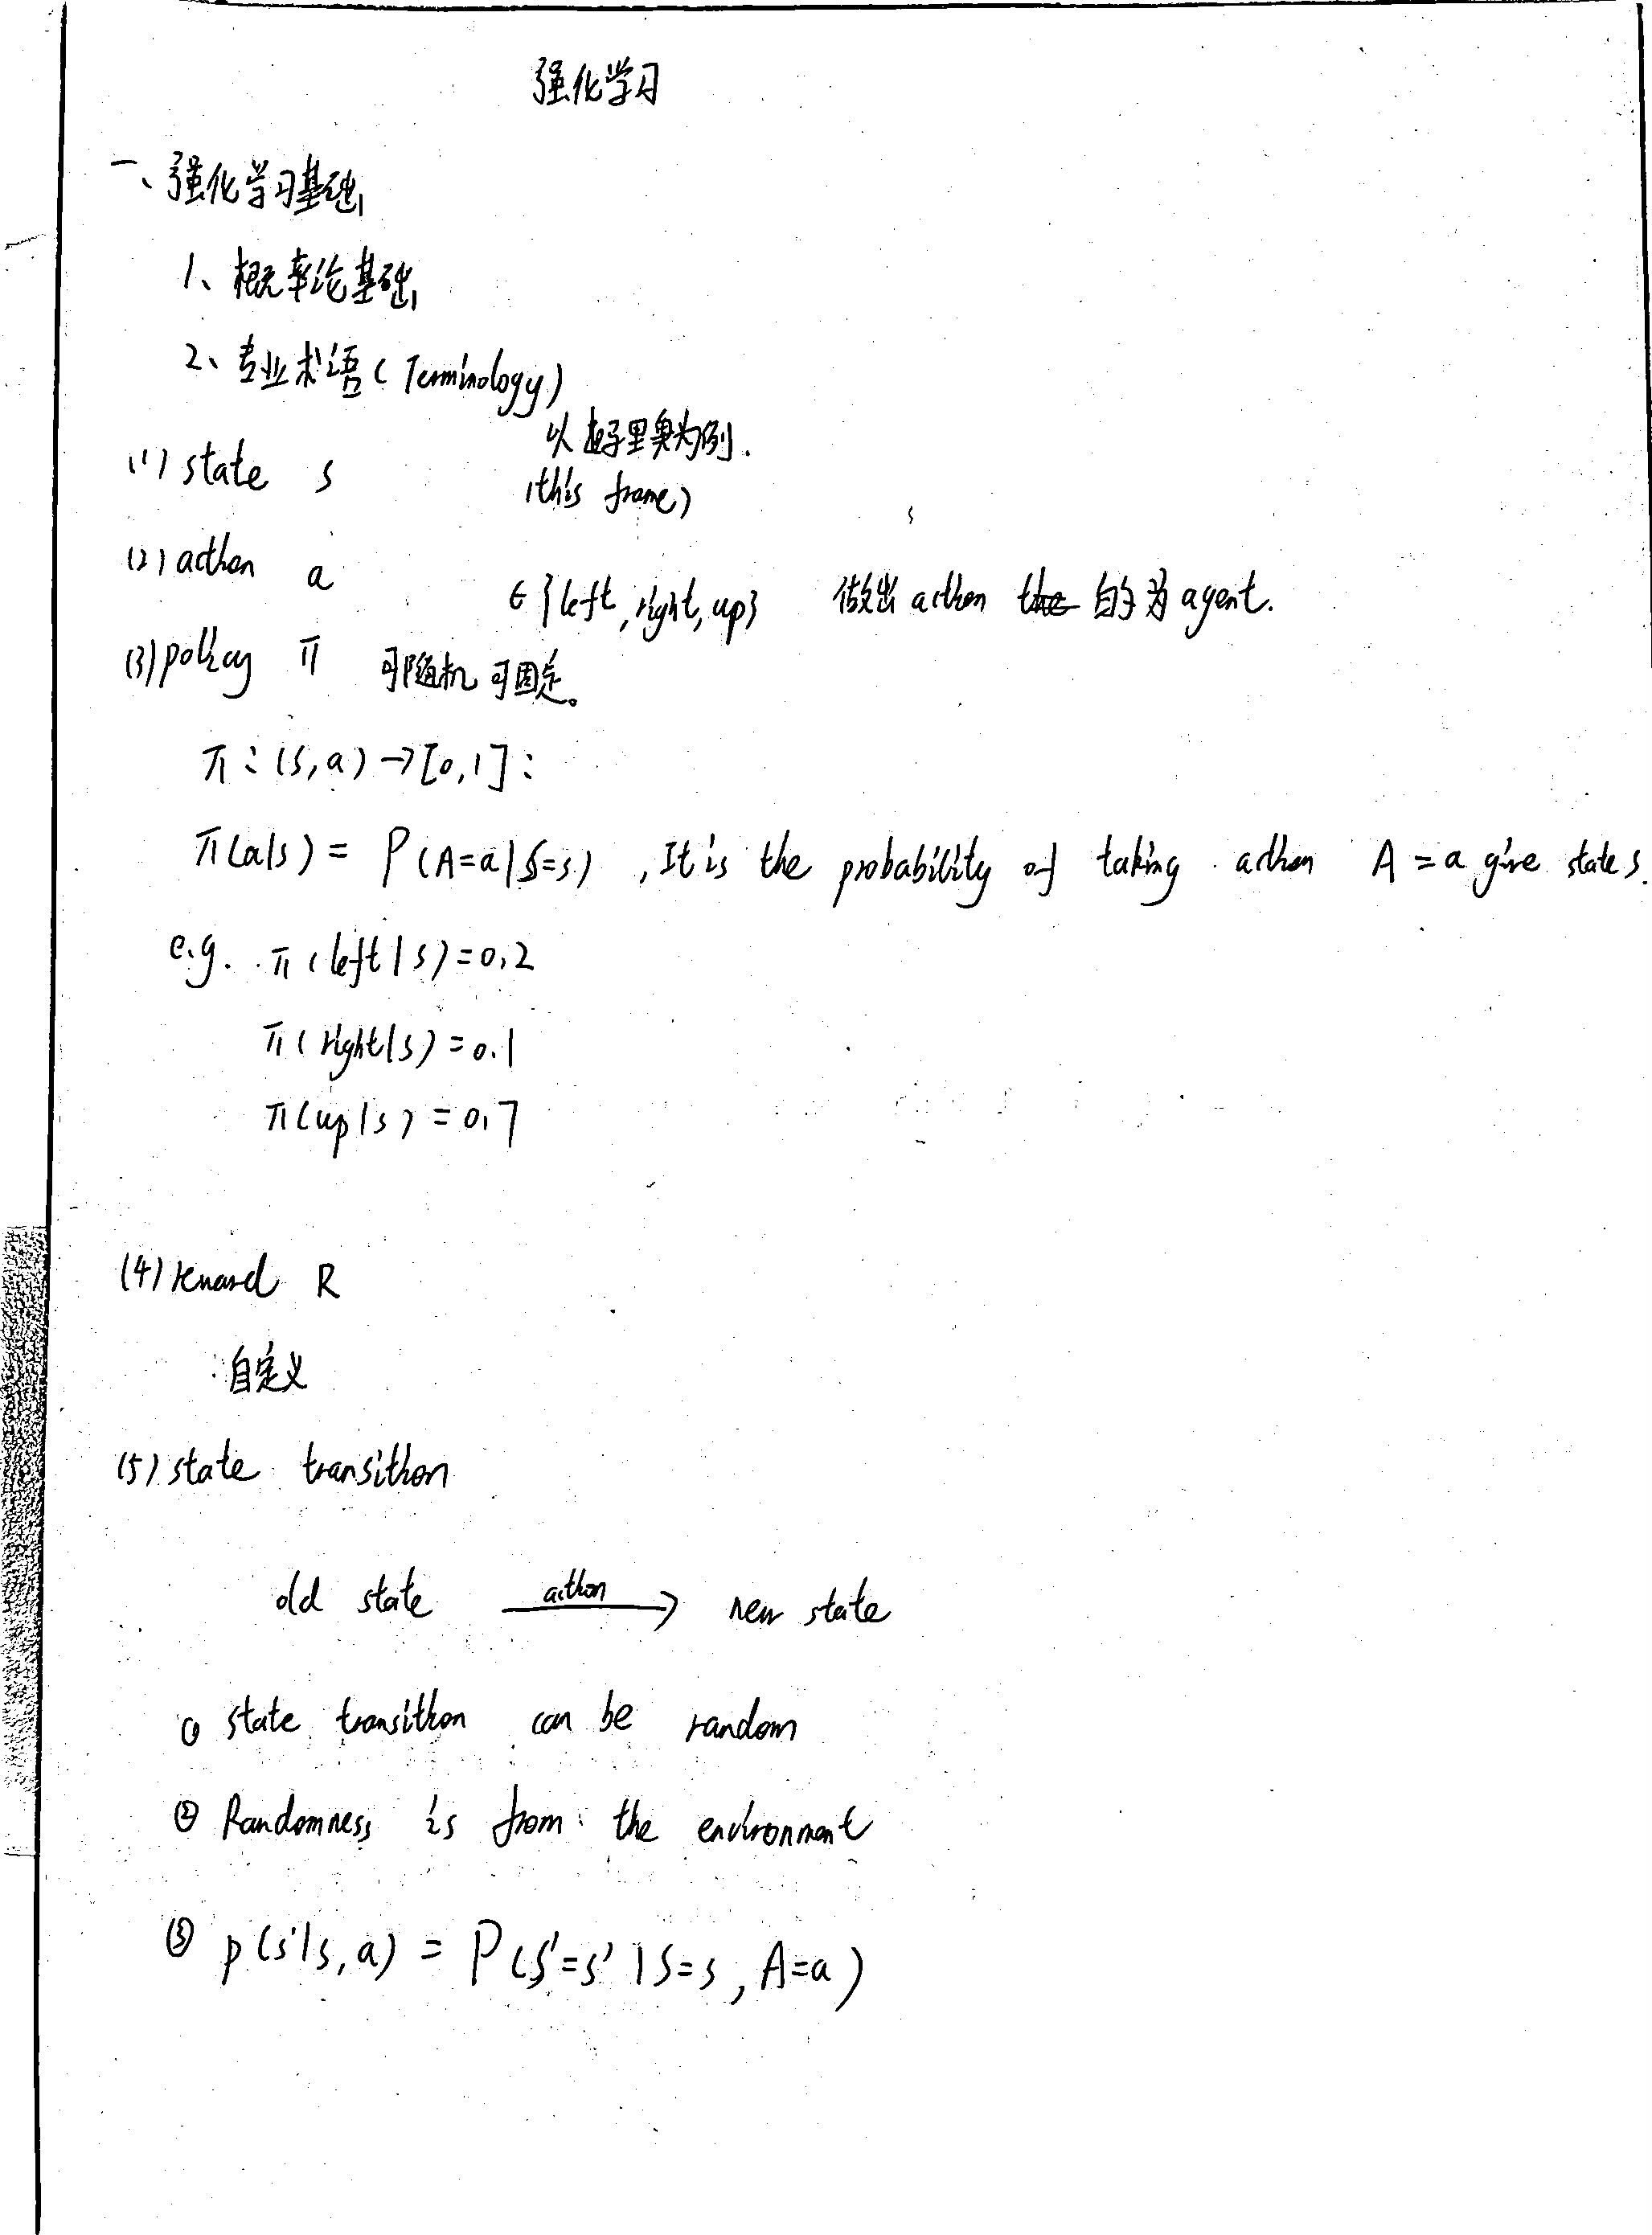 强化学习
一、强化学习基础
1、概率论基础
2、专业术语(Terminology)
以超级里奥为例.
(1) state s (this frame)
(2) action a ∈{left,right,up} 做出action the 的为agent.
(3) policy π 可随机可固定。
π:(s,a)→[0,1]:
π(a|s) = P(A=a|S=s) , It is the probability of taking action A=a give state s.
e.g. π(left|s)=0.2
π(right|s)=0.1
π(up|s)=0.7
(4) reward R
自定义
(5) state transition
old state —action→ new state
① state transition can be random
② Randomness is from the environment
③ p(s'|s,a) = P(S'=s'|S=s,A=a)